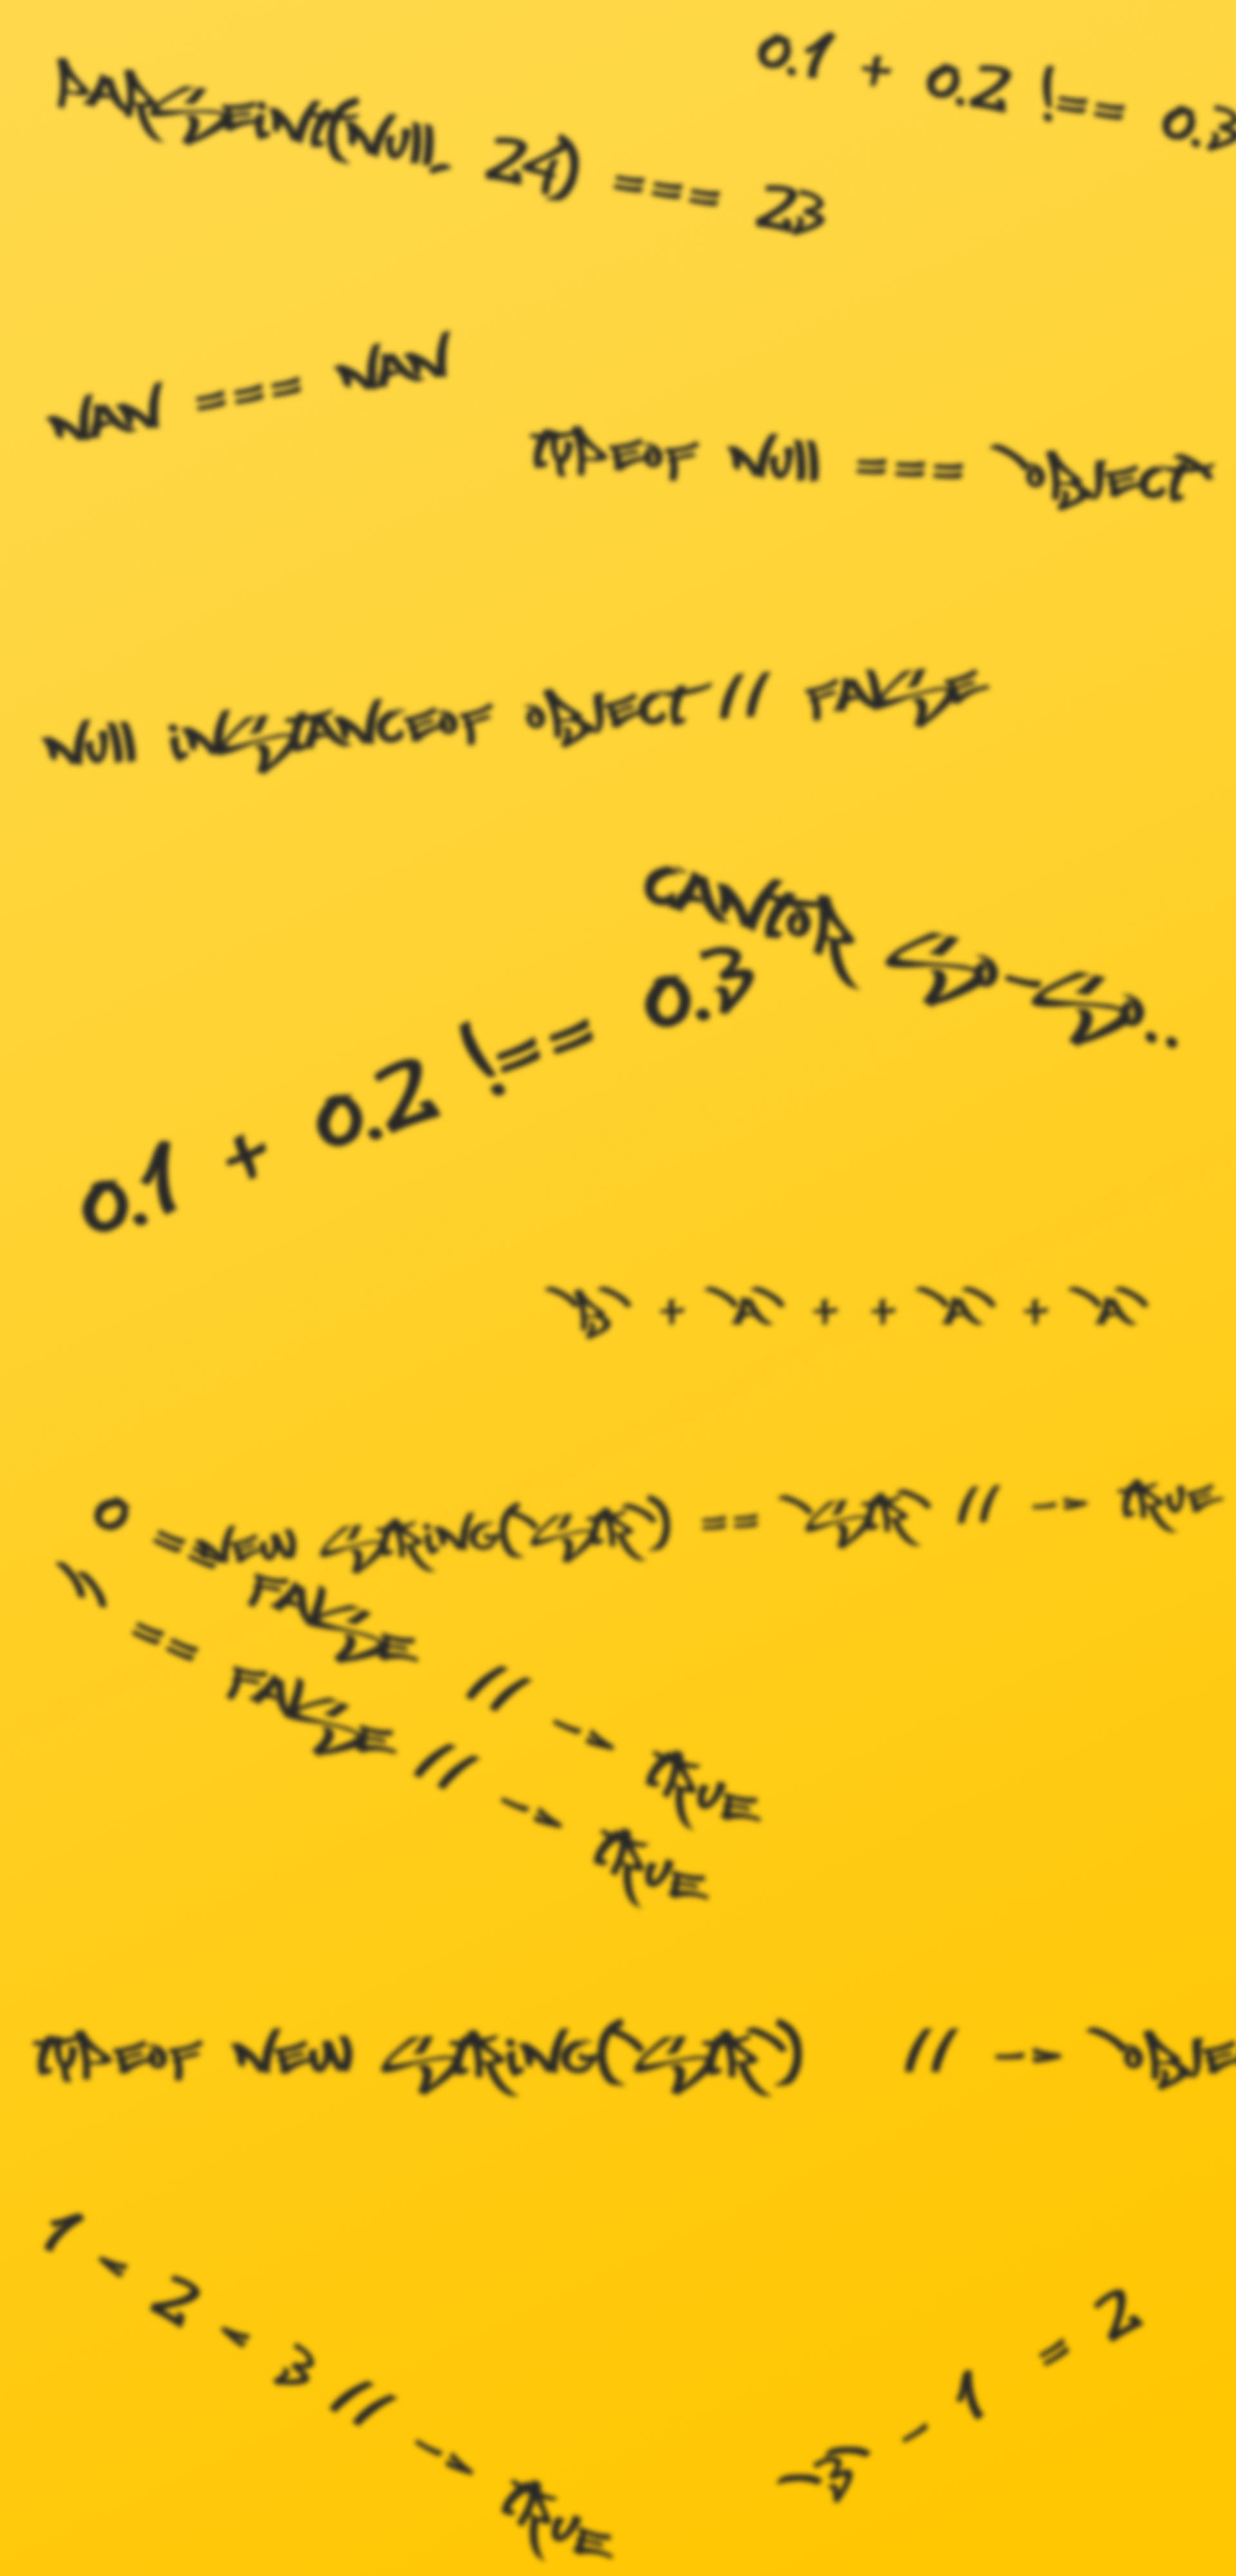 0.1 + 0.2 !== 0.3
parseInt(null, 24) === 23
NaN === NaN
typeof null === 'object'
null instanceof object // false
Cantor so-so..
0.1 + 0.2 !== 0.3
'b' + 'a' + + 'a' + 'a'
new String('str') == 'str' // -> true
0 == false // -> true
'' == false // -> true
typeof new String('str') // -> 'obje
1 < 2 < 3 // -> true
'3' - 1 = 2